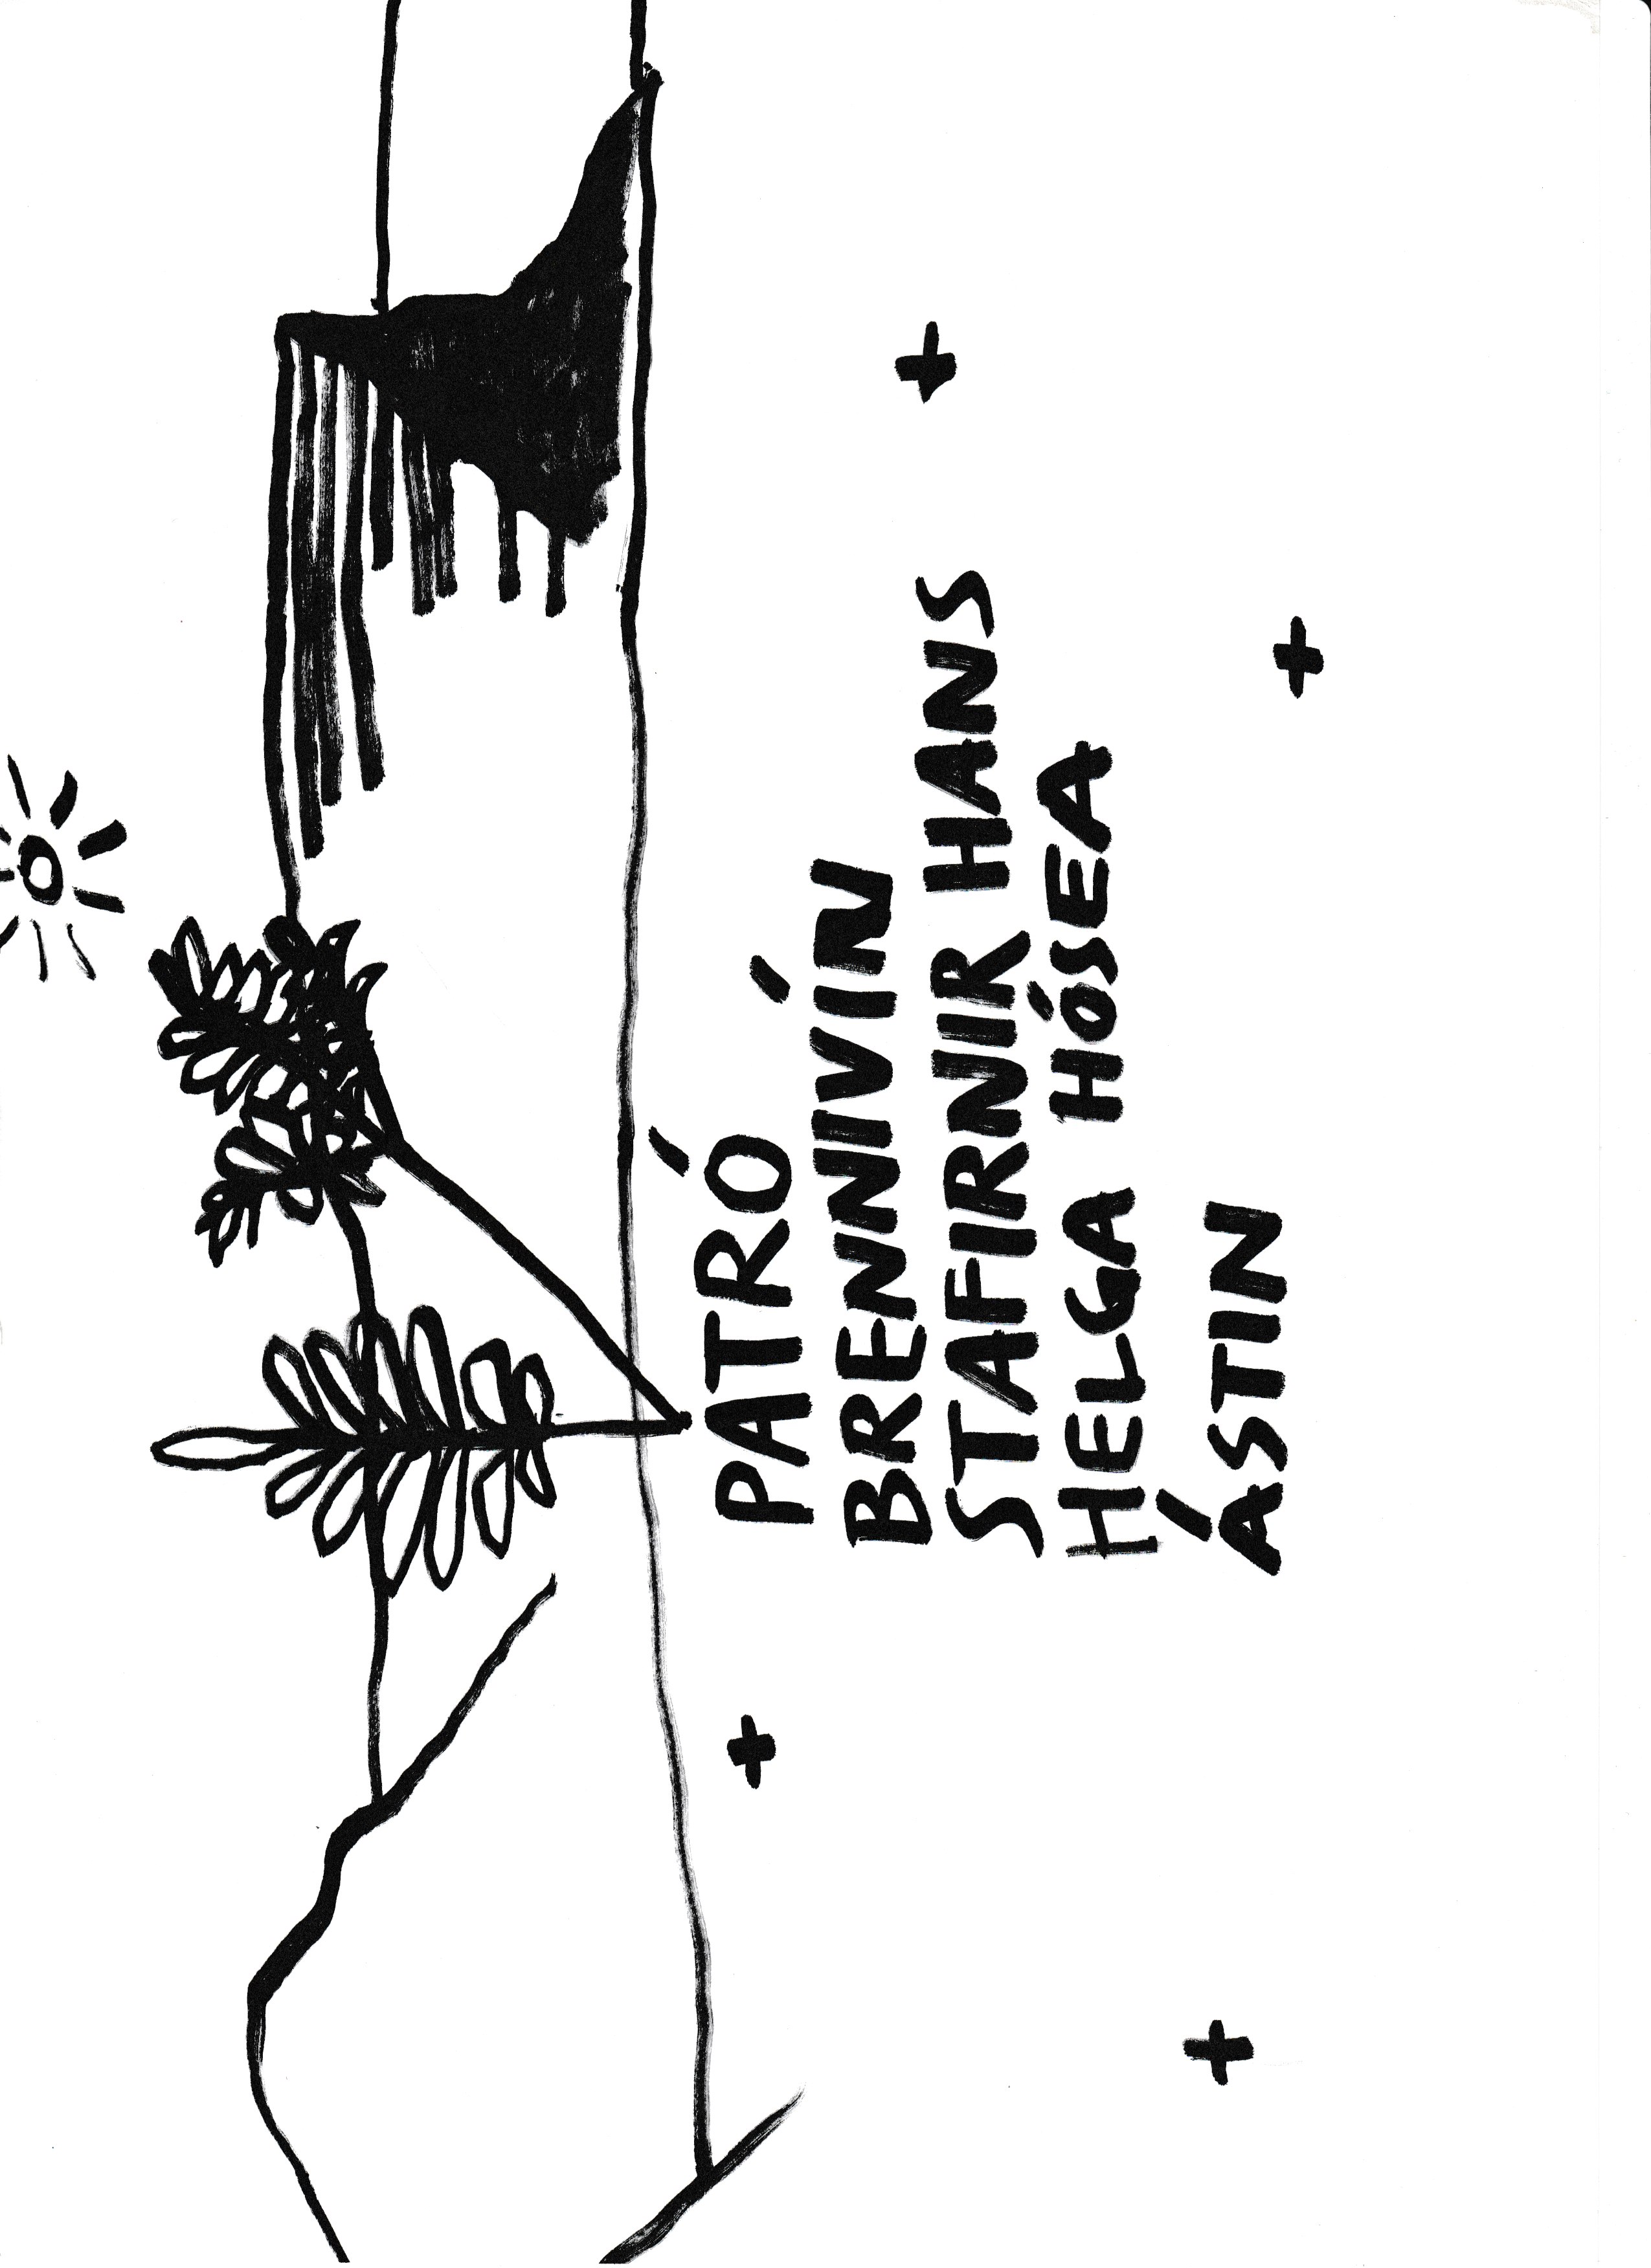 PATRÓ
BRENNIVÍN
STAFIRNIR HANS
HELGA HÓSEA
ÁSTIN